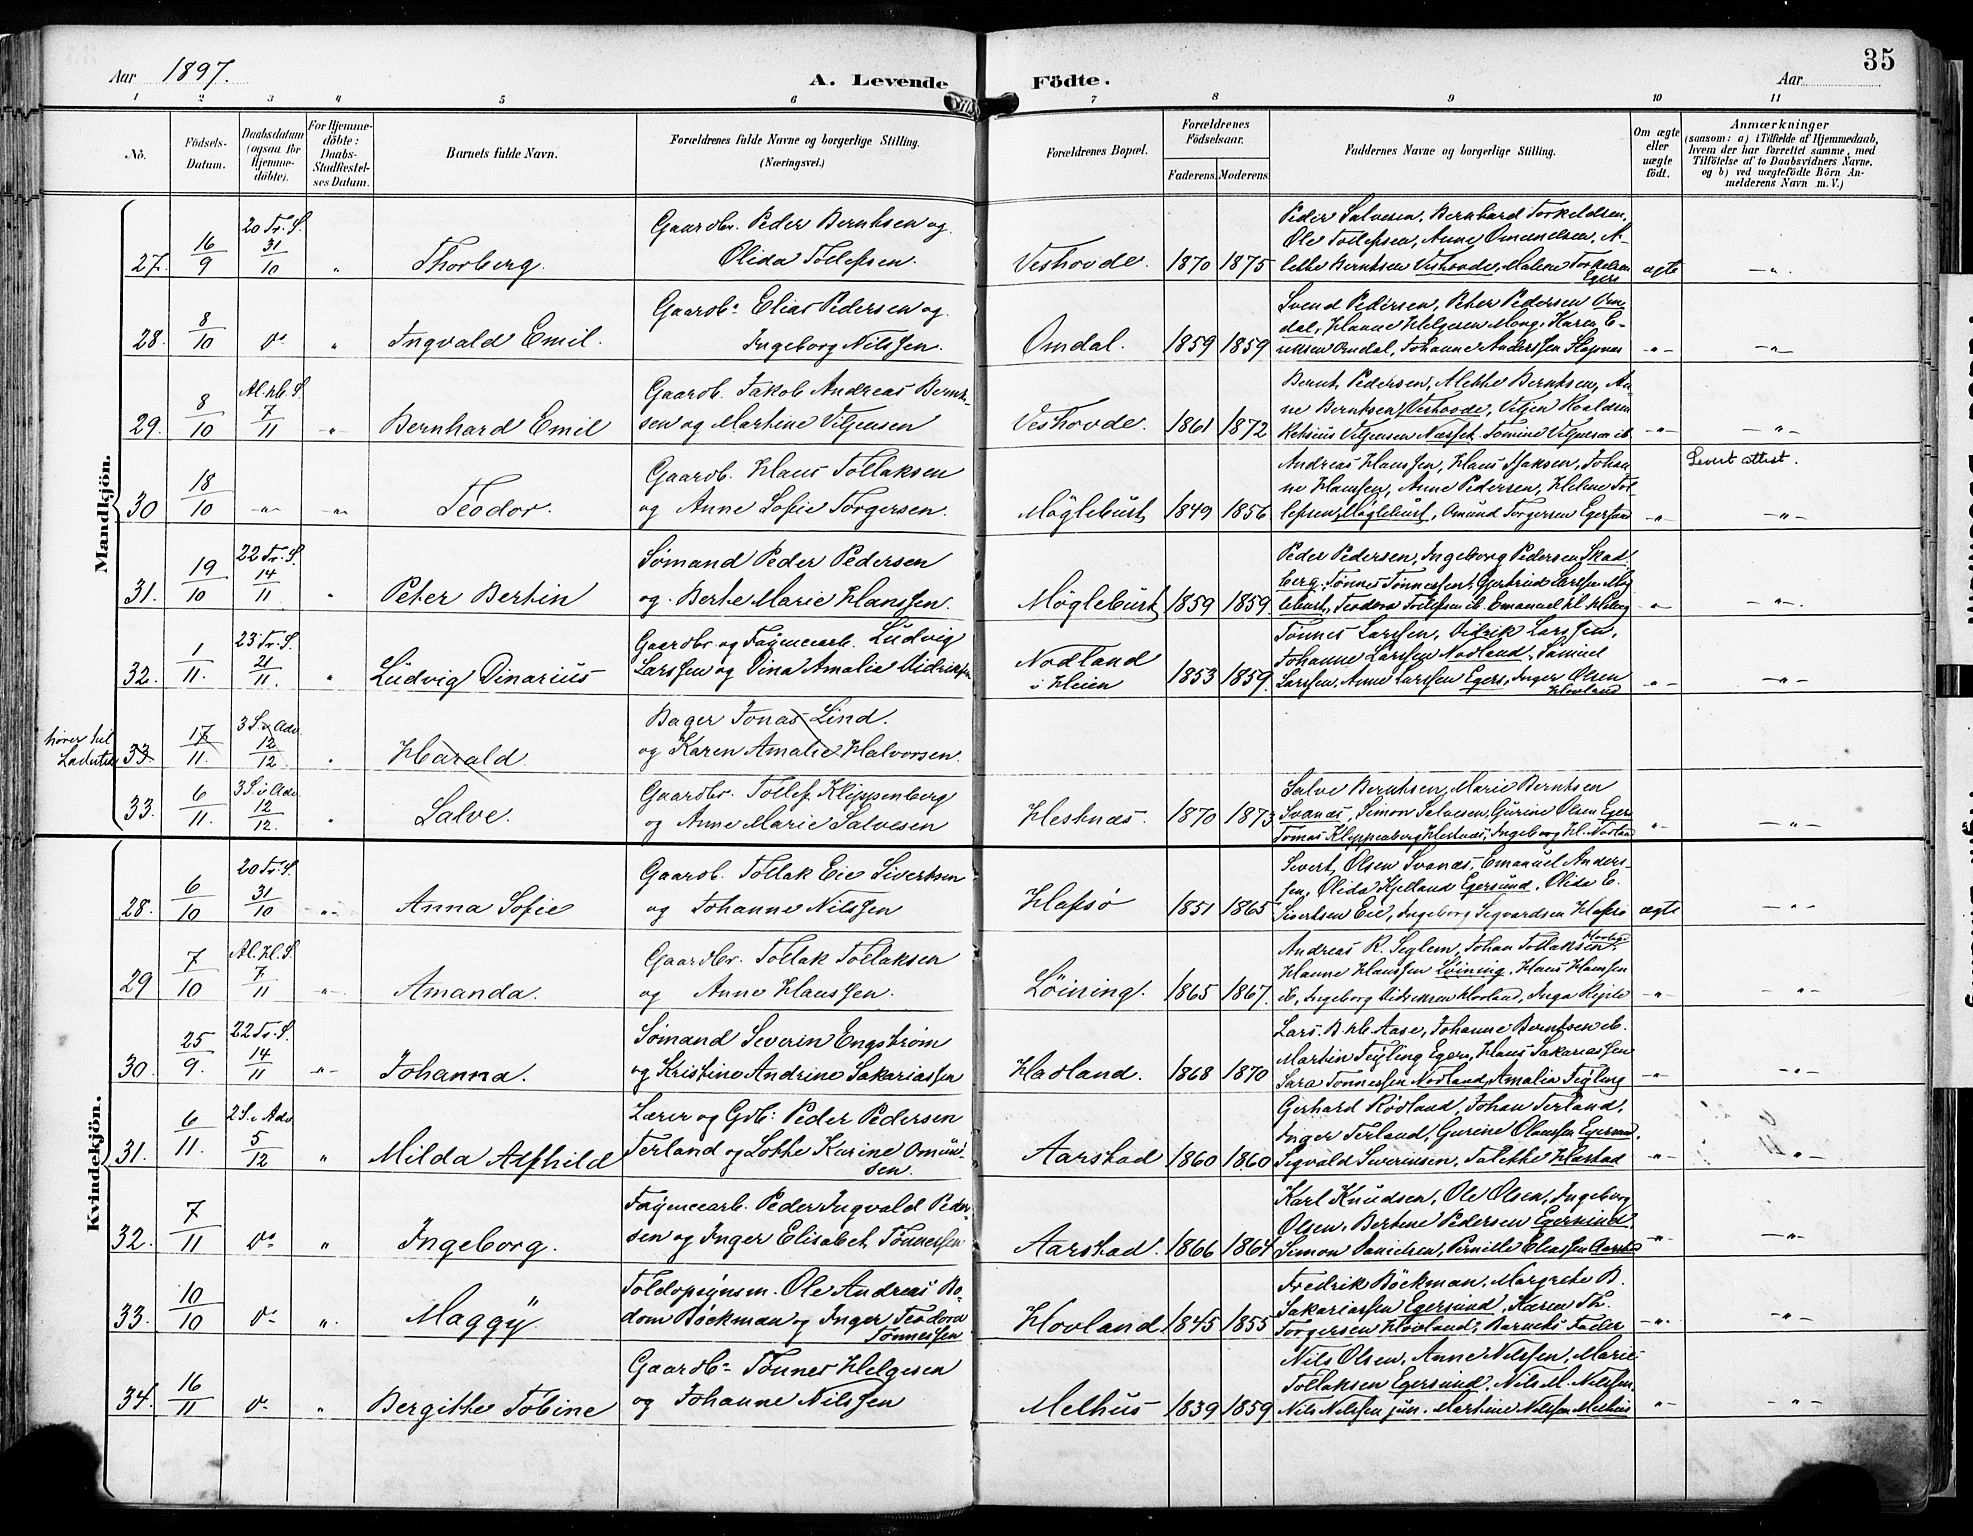 Aar 1897.
A. Levende Födte.
Aar
35
1 2 3 4 5 6 7 8 9 10 11
No.
Födsels-Datum.
Daabsdatum (ogsaa for Hjemme-döbte).
For Hjemme-döbte: Daabs-Stadfæstel-ses Datum.
Barnets fulde Navn.
Forældrenes fulde Navne og borgerlige Stilling.
(Næringsvei.)
Forældrenes Bopæl.
Forældrenes Födselsaar.
Faderens. Moderens.
Faddernes Navne og borgerlige Stilling.
Om ægte eller uægte födt.
Anmærkninger
(saasom: a) i Tilfælde af Hjemmedaab,
hvem der har forrettet samme, med
Tilföielse af to Daabsvidners Navne.
og b) ved uægtefödte Börn An-
melderens Navn m. V.)
Mandkjön.
27. 16/9 20 Tr. S. 31/10 " Thorberg. Gaardbr. Peder Berntsen og
Olida Tollefsen. Vestrovde. 1870 1875
Peder Salvesen, Bernhard Torkeldsen,
Ole Tollefsen, Anne Omundsen, A-
lette Berntsen Vestrovde, Malene Torkelsen
Egers ægte -"-
28. 8/10 do " Ingvald Emil. Gaardb: Elias Pedersen og
Ingeborg Nilssen. Omdal. 1859 1859
Svend Pedersen, Peter Pedersen Om-
dal, Hanne Helgesen Mong, Karen E-
riksen Omdal, Johanne Anderssen -"- -"-
29. 8/10 Al. hl. S. 7/11 " Bernhard Emil Gaardb. Jakob Andreas Bernt-
sen og Martine Viljensen Vestrovde. 1861 1872
Bernt Pedersen, Alette Berntsen, An-
ne Berntsen Vestrovde, Viljen Roaldsen
Viljensen Næsset. Tomine Viljensen ib. -"- -"-
30 18/10 -"- -"- Teodor. Gaardb. Hans Tollaksen
og Anne Sofie Torgersen. Mögleburst 1849 1856
Andreas Hanssen, Hans Isaksen, Johan-
ne Hanssen, Anne Pedersen, Helene Tol-
lefsen Mögleburst, Omund Torgersen Egersund -"- Levert attest. -"-
31. 19/10 22 Tr. S. 14/11 " Peter Bertin Sømand Peder Pedersen
og Berte Marie Hanssen. Mögleburst 1859 1859.
Peder Pedersen, Ingeborg Pedersen Skad-
berg. Tønnes Tønnessen, Gjertrud Larssen Mög-
leburst, Teodora Tollefsen ib. Emanuel -"- -"-
32. 1/11. 23 Tr. S. 21/11. " Ludvig Dinarius Gaardbr og Fayencearb. Ludvig
Larssen og Dina Amalia Didriksen Nodland
i Heien 1853 1859.
Tønnes Larssen, Didrik Larssen,
Johanne Larssen Nodland, Samuel
Larssen, Anne Larssen Egers, Inger Olsen
Hovland -"- -"-
hører til
Ladested
33 17/11. 3 S. i Adv. 12/12 " Harald Bager Jonas Lind.
og Karen Amalie Halvorsen.
33. 6/11. 3 S. i Adv. 12/12. " Salve. Gaardbr. Tollef Klippenberg
og Anne Marie Salvesen Hestnæs. 1870 1873
Salve Berntsen, Marie Berntsen
Svanæs, Simon Salvesen, Gurine Olsen Egers
Tomas Klippenberg Hestnæs, Ingeborg H. Nodland " -"-
Kvindekjön.
28. 6/10 20 Tr. S. 31/10 -"- Anna Sofie Gaardb. Tollak Eie Sivertsen
og Johanne Nilssen Hafsø 1851 1865
Sivert Olsen Svanæs, Emanuel Anders-
sen, Olida Kjelland Egersund, Olida E.
Sivertsen Eie, Ingeborg Sigvardsen Hafsø ægte -"-
29 7/10 Al. Hl. S. 7/11 -"- Amanda. Gaardbr. Tollak Tollaksen
og Anne Hanssen. Löining. 1865 1867.
Andreas R. Seglem, Johan Tollaksen
Hanne Hanssen Löining, Hans Hanssen
ib., Ingeborg Didriksen Hovland, Inga -"- -"-
30. 25/9. 22 Tr. S. 14/11 -"- Johanna. Sømand Severin Engstrøm
og Kristine Andrine Sakariassen Hadland. 1868 1870
Lars B. Aase, Johanne Berntsen ib.
Martin Feyling Egers, Hans Sakariassen
Sara Tønnessen Nodland, Amalia Feyling -"- -"-
31. 6/11. 2 S. i Adv 5/12 " Milda Alfhild Lærer og Gdb: Peder Pedersen
Terland og Lotte Karine Omund-
sen. Aarstad 1860 1860
Gerhard Rödland, Johan Terland,
Inger Terland, Gurine Olaussen Egersund,
Sigvald Severinsen, Talette Harstad -"- "-
32. 7/11 do " Ingeborg. Fayencearb. Peder Ingvald Peder-
sen og Inger Elisabet Tønnessen Aarstad. 1866 1864
Karl Knudsen, Ole Olsen, Ingeborg
Olsen, Bertine Pedersen Egersund,
Simon Danielsen, Pernille Eliassen Aarstad -"- -"-
33. 10/10 do " Maggy. Toldopsynsm. Ole Andreas Bo-
dom Böckman og Inger Teodora
Tønnessen Hovland 1845 1855
Fredrik Böckman, Margrete B.
Sakariassen Egersund, Karen Th.
Torgersen Hovland, Barnets Fader -"- "-
34. 16/11 do " Bergitte Tobine Gaardb: Tønnes Helgesen
og Johanne Nilssen Melhus 1839 1859
Nils Olsen, Anne Nilssen, Marie
Tollaksen Egersund, Nils M. Nilssen,
Nils Nilssen jun. Martine Nilssen Melhus -"- -"-